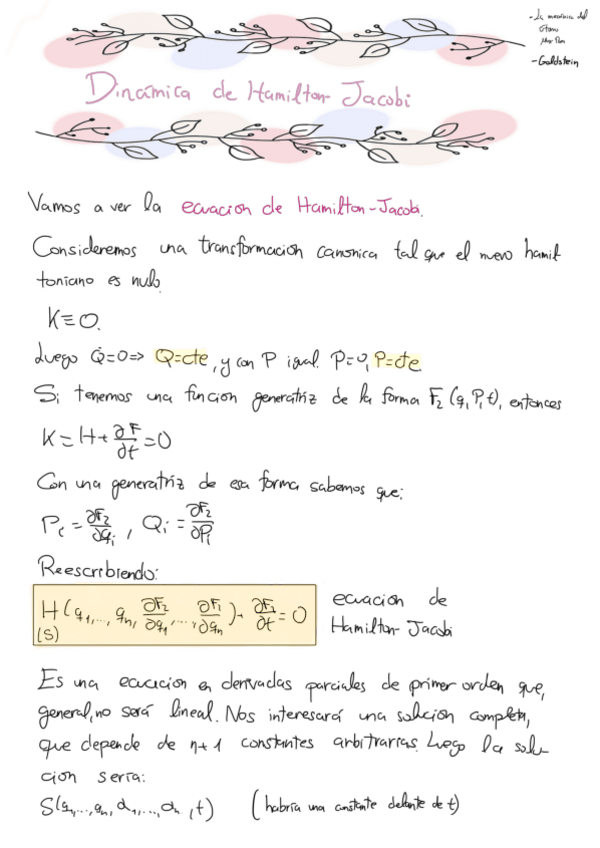 - La mecánica del
átomo
- Goldstein
Dinámica de Hamilton-Jacobi
Vamos a ver la ecuación de Hamilton-Jacobi.
Consideremos una transformación canónica tal que el nuevo hamil
toniano es nulo.
K≡0.
Luego Q̇=0=> Q=cte, y con P igual. Ṗ=0, P=cte
Si tenemos una función generatriz de la forma F₂(q,P,t), entonces
K=H+∂F/∂t=0
Con una generatriz de esa forma sabemos que:
Pᵢ=∂F₂/∂qᵢ, Qᵢ=∂F₂/∂Pᵢ
Reescribiendo:
H(q₁,...,qₙ,∂F₂/∂q₁,...,∂F₂/∂qₙ)+∂F₂/∂t=0 ecuación de
(S) Hamilton-Jacobi
Es una ecuación en derivadas parciales de primer orden que,
general, no será lineal. Nos interesará una solución completa,
que depende de n+1 constantes arbitrarias. Luego la solu-
ción sería:
S(q₁,...,qₙ,α₁,...,αₙ,t) (habría una constante delante de t)